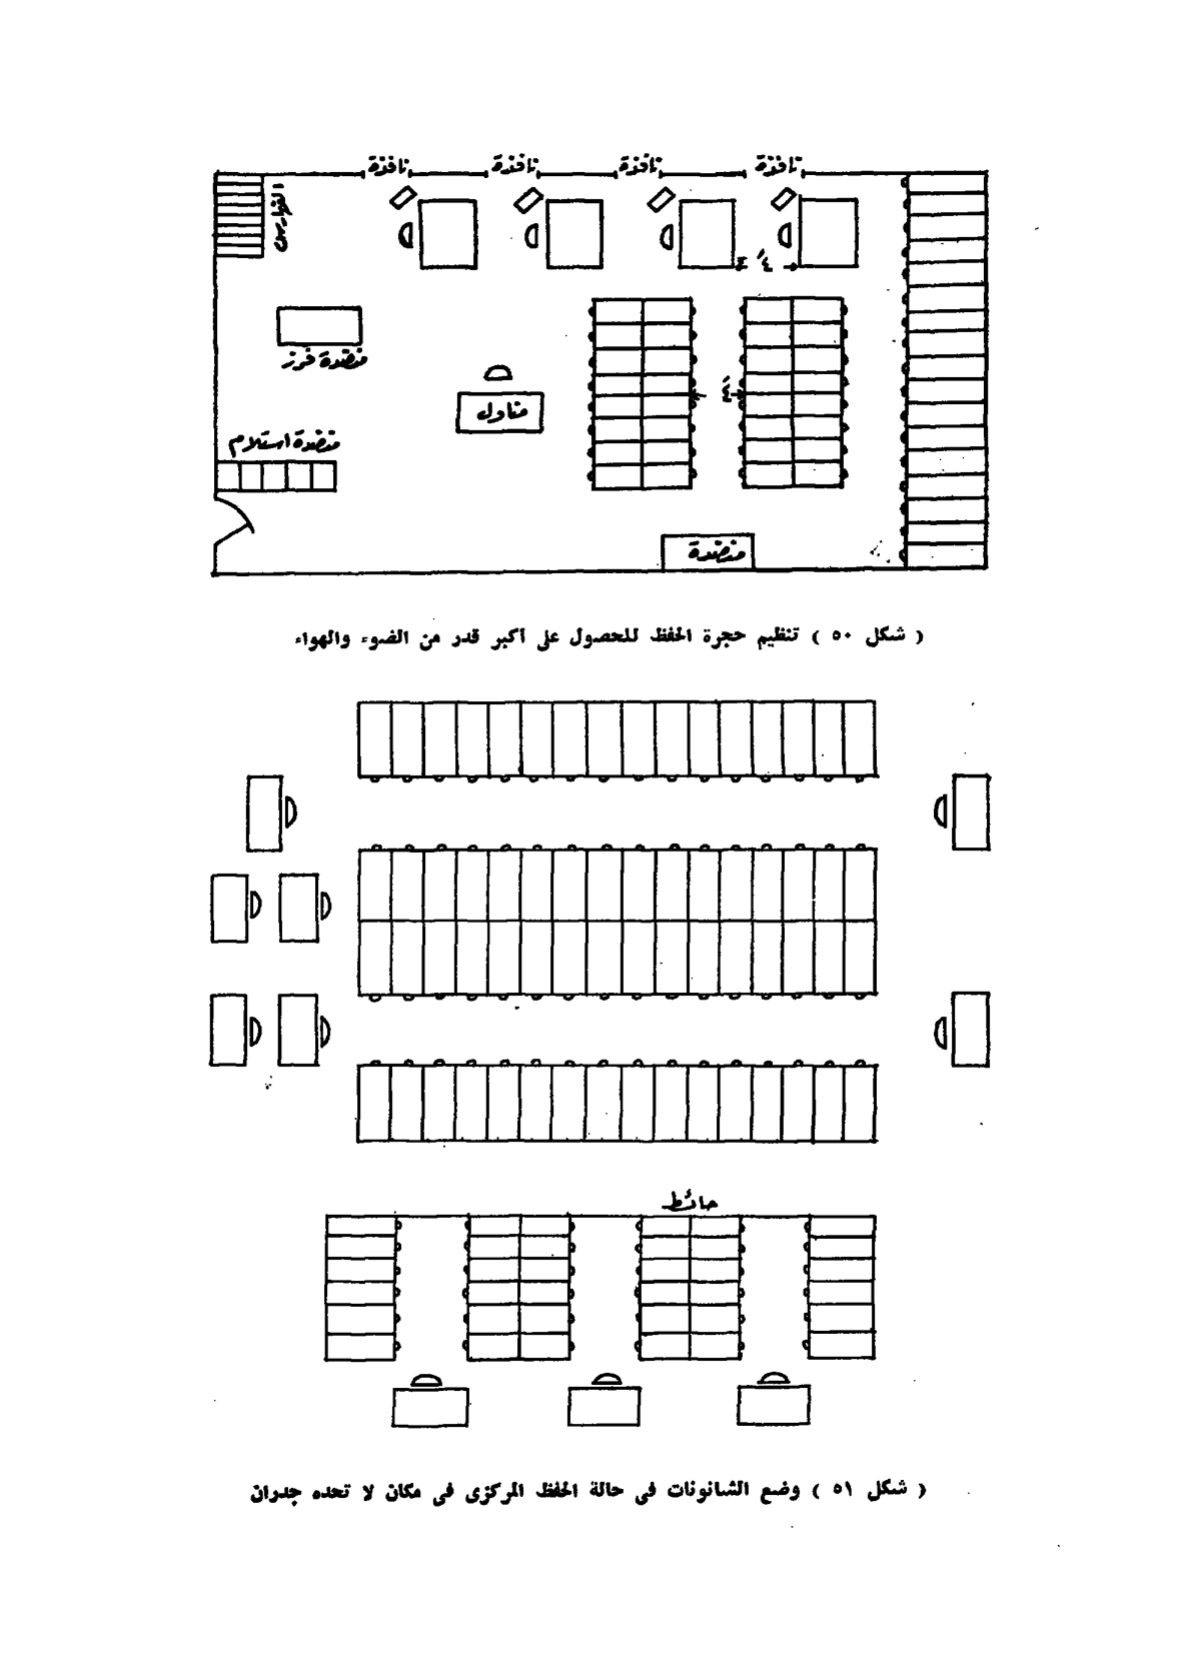 نافذة نافذة نافذة نافذة
الفهارس
٤َ
منضدة فرز
٤َ
مناول
منضدة استلام
منضدة
( شكل ٥٠ ) تنظيم حجرة الحفظ للحصول على أكبر قدر من الضوء والهواء
حائط
( شكل ٥١ ) وضع الشانونات فى حالة الحفظ المركزى فى مكان لا تحده جدران